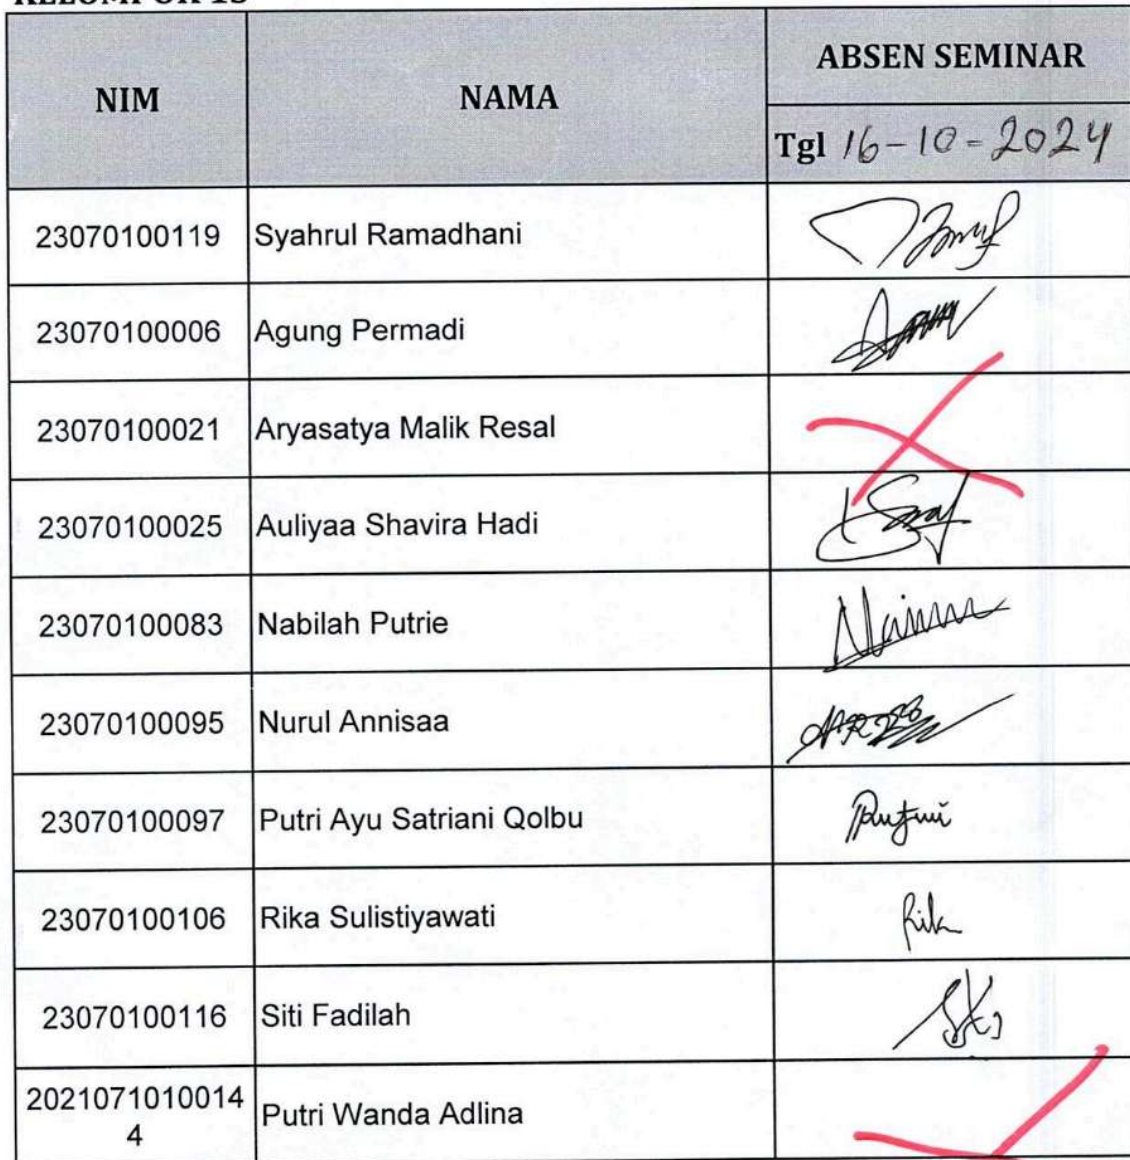 NIM
NAMA
ABSEN SEMINAR
Tgl 16-10-2024
23070100119 Syahrul Ramadhani
23070100006 Agung Permadi
23070100021 Aryasatya Malik Resal
23070100025 Auliyaa Shavira Hadi
23070100083 Nabilah Putrie
23070100095 Nurul Annisaa
23070100097 Putri Ayu Satriani Qolbu
23070100106 Rika Sulistiyawati Rika
23070100116 Siti Fadilah
2021071010014
4
Putri Wanda Adlina